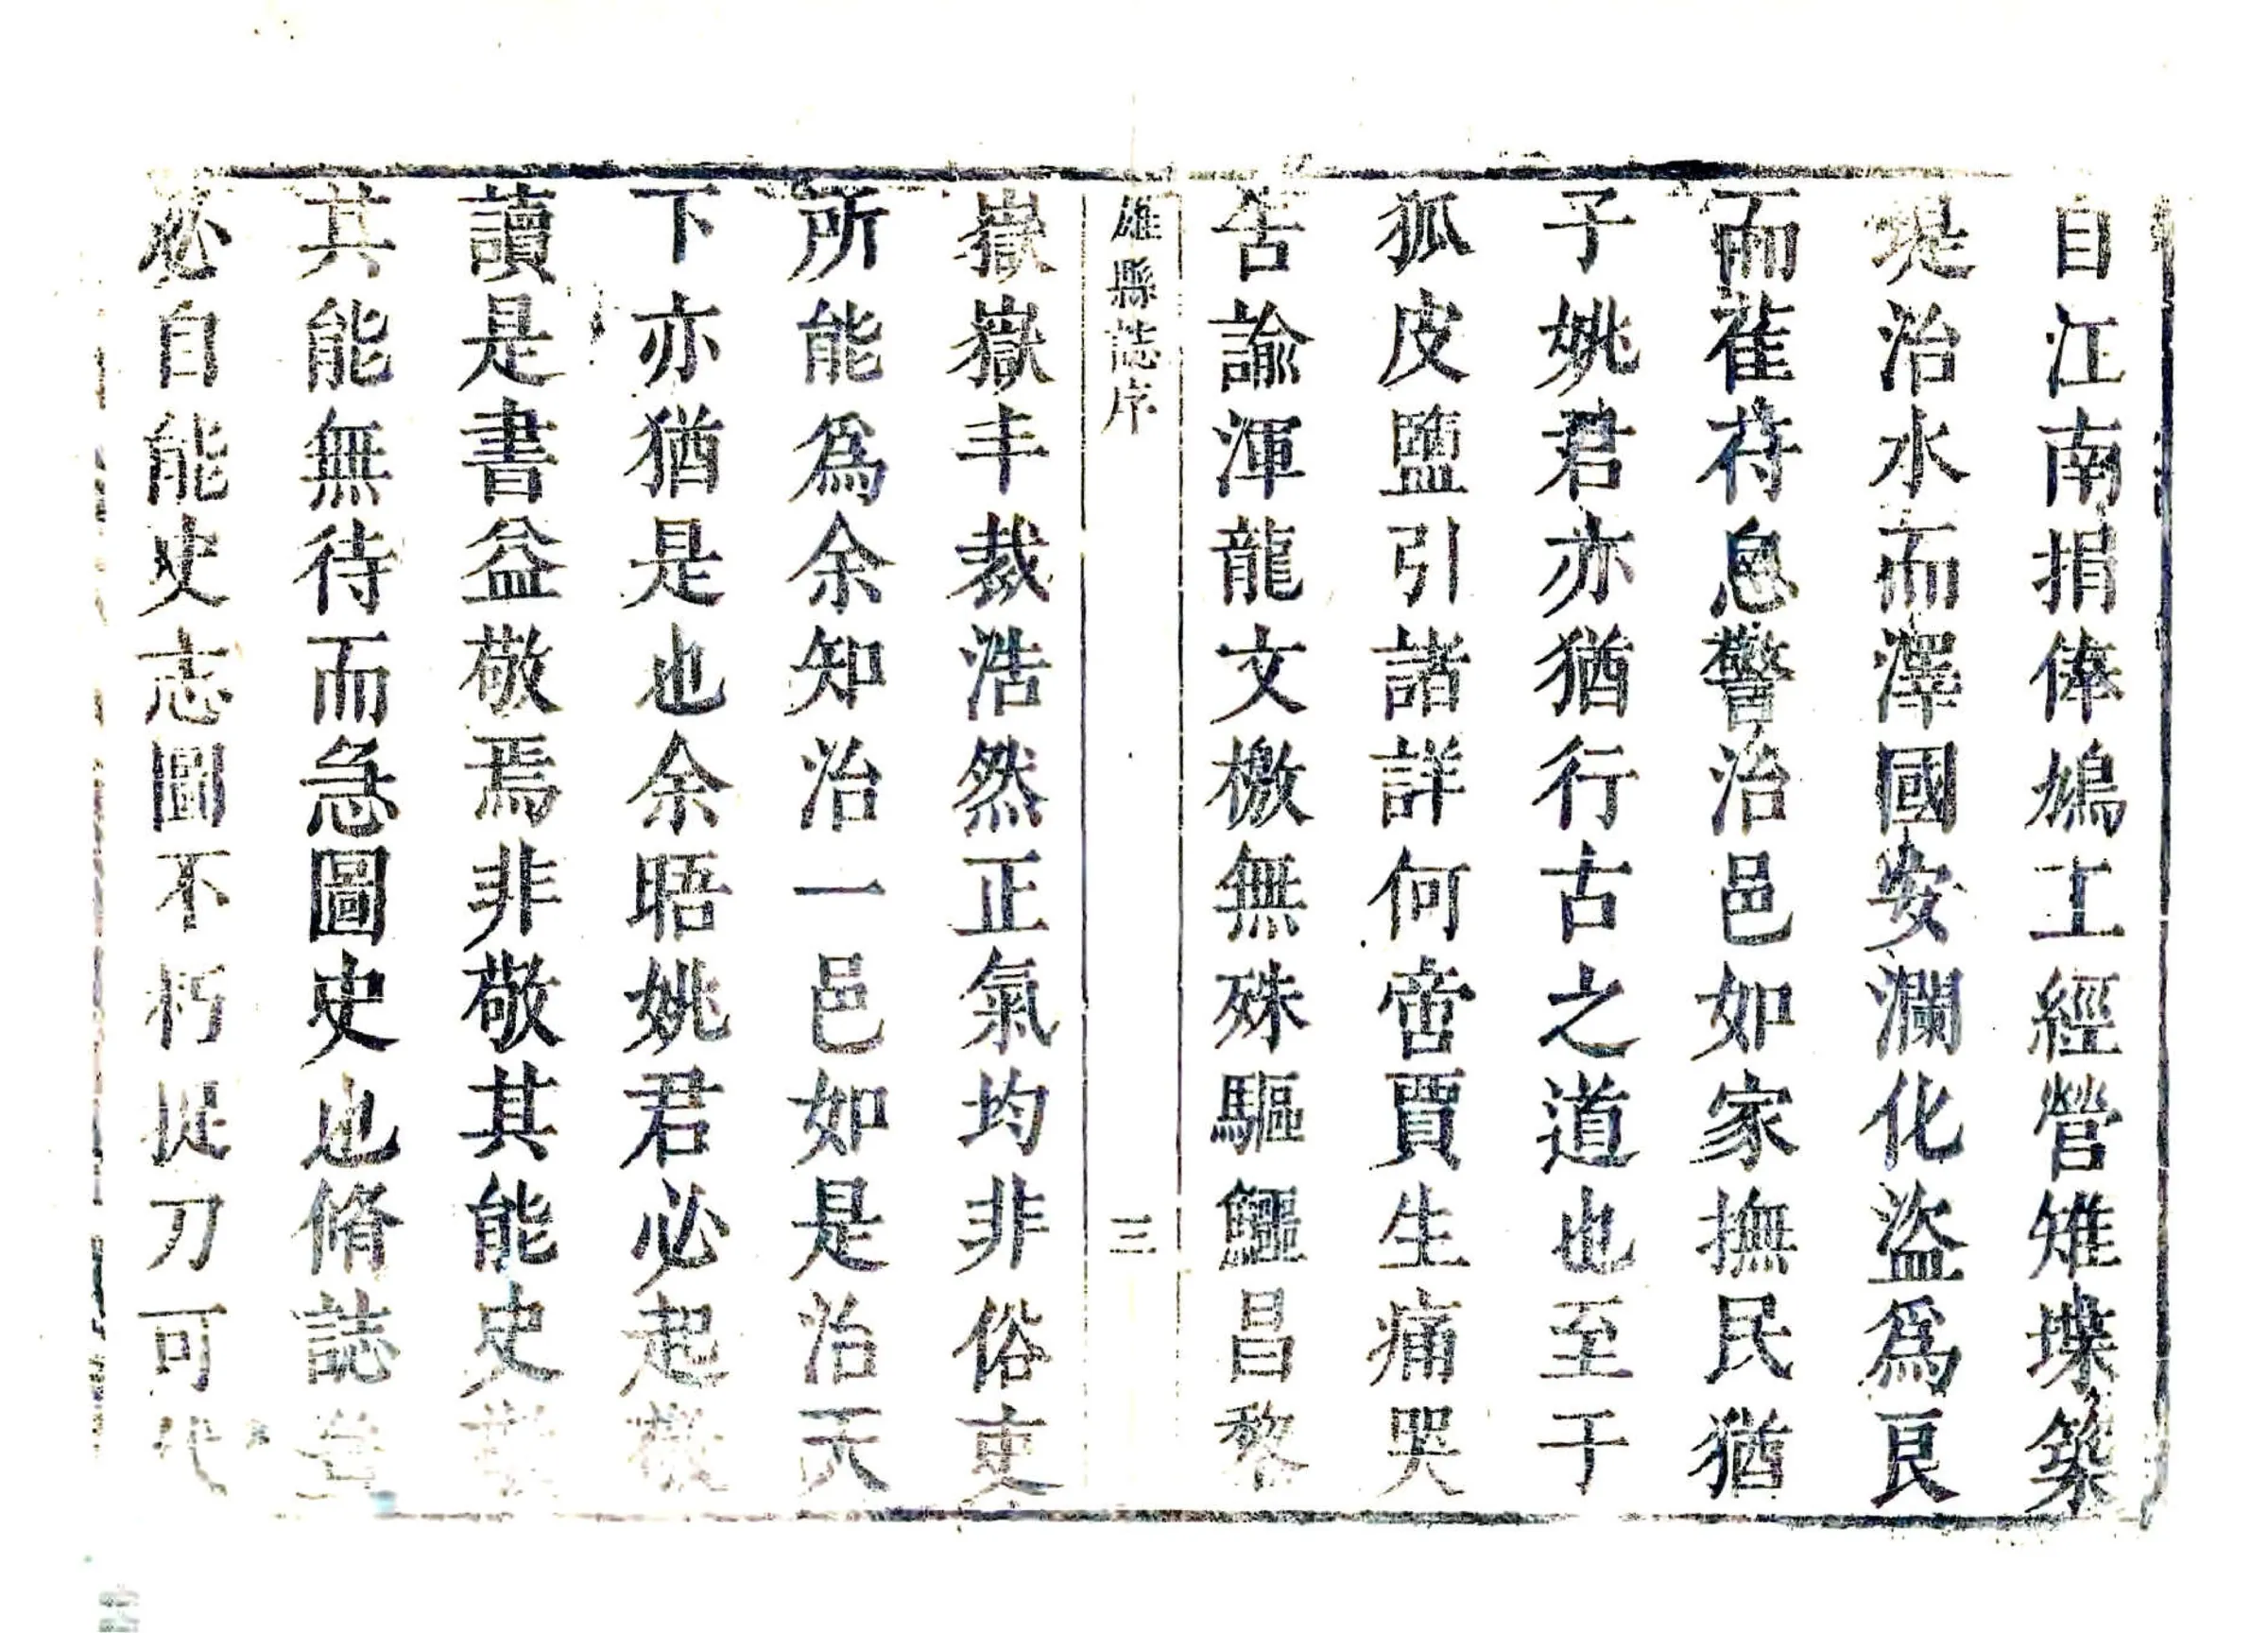 自江南捐俸鳩工經營雉堞築
堤治水而澤國安瀾化盜爲良
而萑苻息警治邑如家撫民猶
子姚君亦猶行古之道也至于
狐皮鹽引諸詳何啻賈生痛哭
告諭渾龍文檄無殊驅鱷昌黎
雄縣誌序
三
嶽嶽丰裁浩然正氣均非俗吏
所能爲余知治一邑如是治天
下亦猶是也余晤姚君必起敬
讀是書益敬焉非敬其能史敬
其能無待而急圖史也脩誌者
必自能史志圖不朽捉刀可代